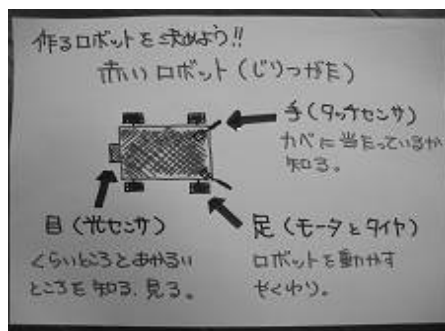 作るロボットを決めよう!!
赤いロボット(じりつがた)
手(タッチセンサ)
カベに当たっているか
知る。
目(光センサ)
くらいところとあかるい
ところを知る、見る。
足(モータとタイヤ)
ロボットを動かす
やくわり。